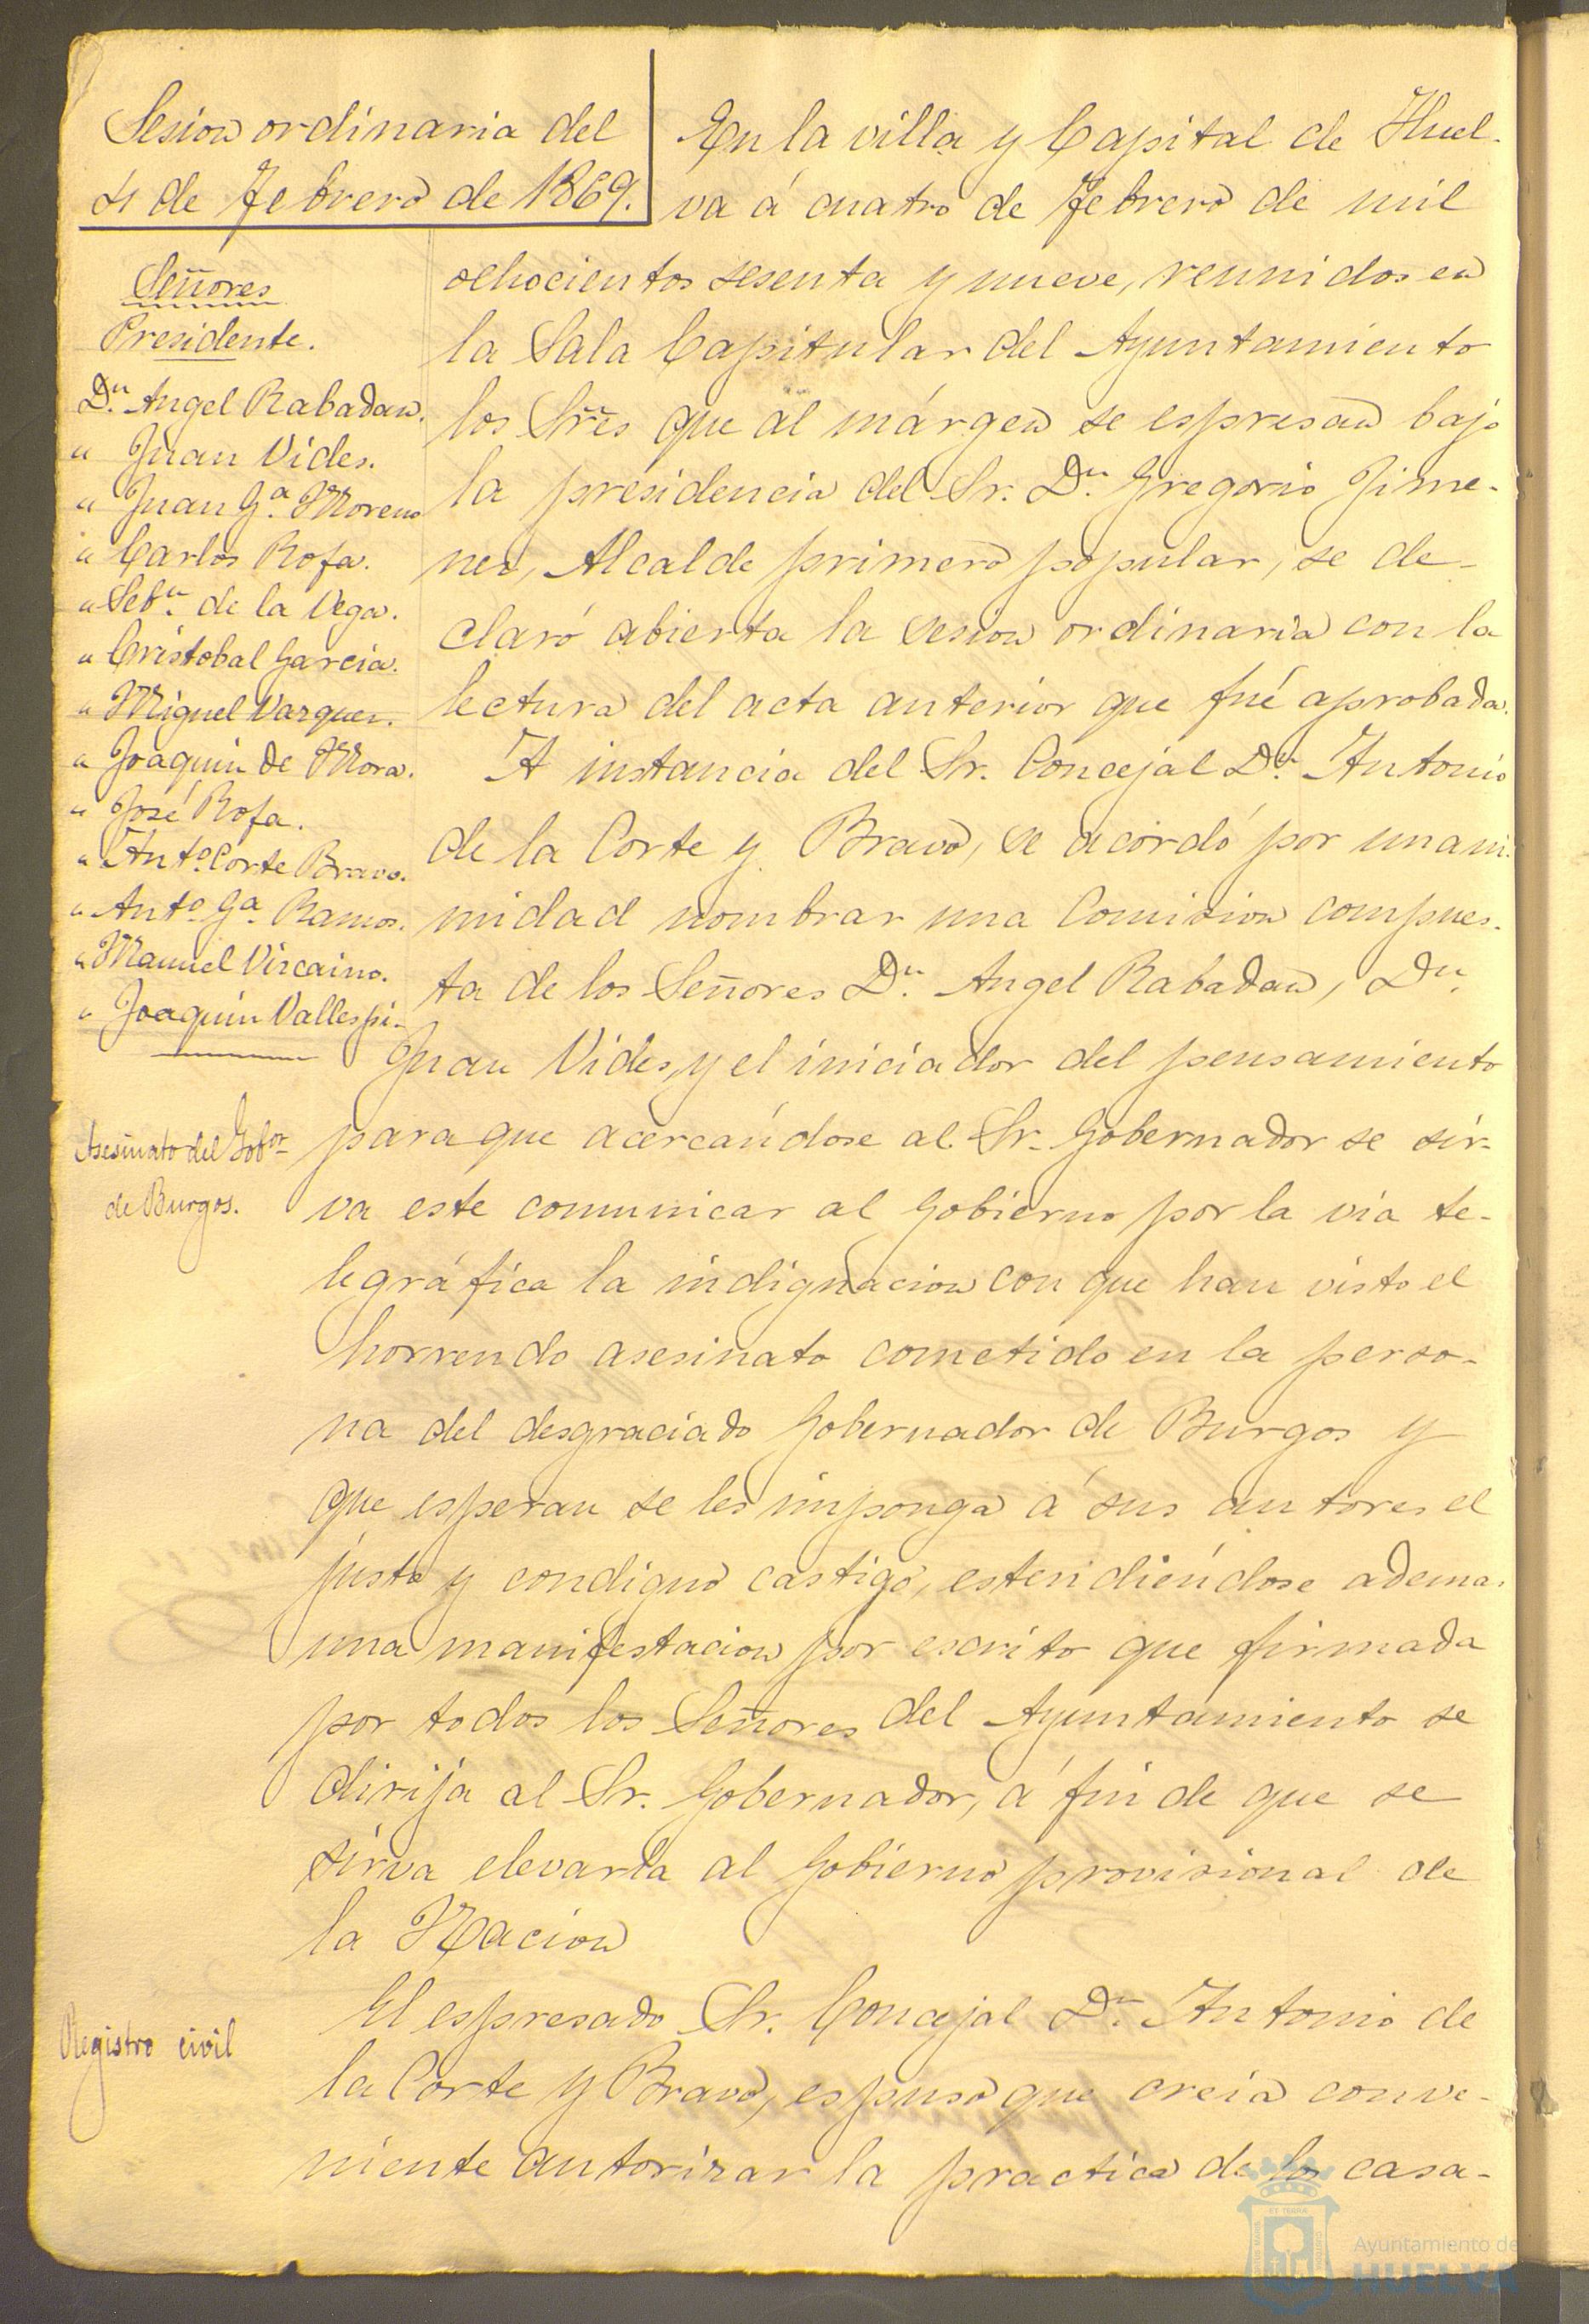 Sesion ordinaria del
4 de Febrero de 1869.
Señores
Presidente.
Dn. Angel Rabadan.
" Juan Vides.
" Juan Ga. Moreno
" Carlos Rofa.
" Sebn. de la Vega.
" Cristobal Garcia.
" Miguel Vazquez.
" Joaquin de Mora.
" José Rofa.
" Anto. Corte Bravo.
" Anto. Ga. Ramos.
" Manuel Vizcaino.
" Joaquin Vallespi.
En la villa y Capital de Huel-
va á cuatro de Febrero de mil
ochocientos sesenta y nueve, reunidos en
la Sala Capitular del Ayuntamiento
los Sres que al márgen se espresan bajo
la presidencia del Sr. Dn. Gregorio Jime-
nez, Alcalde primero popular, se de-
claró abierta la sesion ordinaria con la
lectura del acta anterior que fué aprobada.
A instancia del Sr. Concejal Dn. Antonio
de la Corte y Bravo, se acordó por unani-
midad nombrar una Comision compues-
ta de los Señores Dn. Angel Rabadan, Dn.
Juan Vides, y el iniciador del pensamiento
Asesinato del Gobor
de Burgos.
para que acercándose al Sr. Gobernador se sir-
va este comunicar al Gobierno por la via te-
legráfica la indignacion con que han visto el
horrendo asesinato cometido en la perso-
na del desgraciado Gobernador de Burgos y
que esperan se les imponga á sus autores el
justo y condigno castigo, estendiéndose ademas
una manifestacion por escrito que firmada
por todos los Señores del Ayuntamiento se
dirija al Sr. Gobernador, á fin de que se
sirva elevarla al Gobierno provisional de
la Nacion
Registro civil
El espresado Sr. Concejal Dn. Antonio de
la Corte y Bravo, espuso que creia conve-
niente autorizar la practica de los casa-
Ayuntamiento de
HUELVA